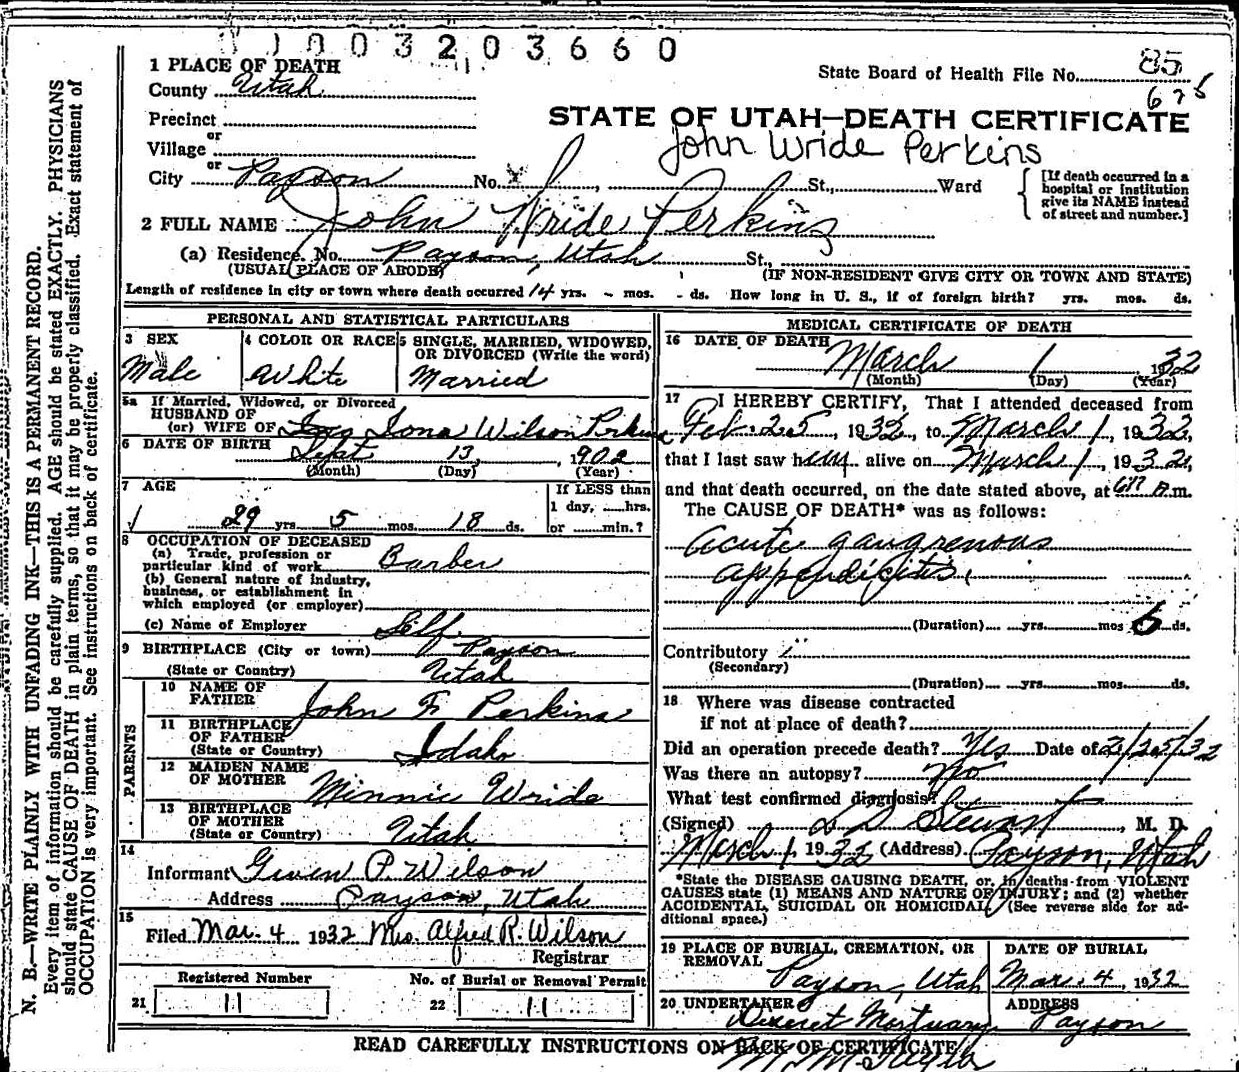 0003203660
1 PLACE OF DEATH
State Board of Health File No. 85
County Utah
675
Precinct
STATE OF UTAH—DEATH CERTIFICATE
or
John Wride Perkins
Village
or
City Payson No. St., Ward
[If death occurred in a
hospital or institution
give its NAME instead
of street and number.]
2 FULL NAME John Wride Perkins
(a) Residence. No. Payson, Utah St.,
(USUAL PLACE OF ABODE) (IF NON-RESIDENT GIVE CITY OR TOWN AND STATE)
Length of residence in city or town where death occurred 14 yrs. - mos. - ds. How long in U. S., if of foreign birth? yrs. mos. ds.
PERSONAL AND STATISTICAL PARTICULARS
3 SEX
Male
4 COLOR OR RACE
White
5 SINGLE, MARRIED, WIDOWED,
OR DIVORCED (Write the word)
Married
5a If Married, Widowed, or Divorced
HUSBAND OF
(or) WIFE OF Iona Wilson Perkins
6 DATE OF BIRTH Sept 13, 1902
(Month) (Day) (Year)
7 AGE
29 yrs. 5 mos. 18 ds.
If LESS than
1 day, hrs.
or min.?
8 OCCUPATION OF DECEASED
(a) Trade, profession or
particular kind of work Barber
(b) General nature of industry,
business, or establishment in
which employed (or employer)
(c) Name of Employer Self
9 BIRTHPLACE (City or town) Payson
(State or Country) Utah
PARENTS
10 NAME OF
FATHER John F Perkins
11 BIRTHPLACE
OF FATHER
(State or Country) Idaho
12 MAIDEN NAME
OF MOTHER Minnie Wride
13 BIRTHPLACE
OF MOTHER
(State or Country) Utah
14
Informant Given P. Wilson
Address Payson, Utah
15
Filed Mar. 4 1932 Mrs. Alfred R. Wilson
Registrar
Registered Number
21 11
No. of Burial or Removal Permit
22 11
MEDICAL CERTIFICATE OF DEATH
16 DATE OF DEATH
March 1 1932
(Month) (Day) (Year)
17 I HEREBY CERTIFY, That I attended deceased from
Feb. 25, 1932, to March 1, 1932,
that I last saw him alive on March 1, 1932,
and that death occurred, on the date stated above, at A.m.
The CAUSE OF DEATH* was as follows:
Acute gangrenous
appendicitis.
(Duration) yrs. mos 6 ds.
Contributory
(Secondary)
(Duration) yrs. mos. ds.
18 Where was disease contracted
if not at place of death?
Did an operation precede death? Yes Date of 2/25/32
Was there an autopsy? No
What test confirmed diagnosis?
(Signed) L D Stewart, M. D.
March 1, 1932 (Address) Payson, Utah
*State the DISEASE CAUSING DEATH, or, in deaths from VIOLENT
CAUSES state (1) MEANS AND NATURE OF INJURY; and (2) whether
ACCIDENTAL, SUICIDAL OR HOMICIDAL. (See reverse side for ad-
ditional space.)
19 PLACE OF BURIAL, CREMATION, OR
REMOVAL
Payson, Utah
DATE OF BURIAL
Mar. 4, 1932
20 UNDERTAKER
Deseret Mortuary
ADDRESS
Payson
READ CAREFULLY INSTRUCTIONS ON BACK OF CERTIFICATE
N. B.—WRITE PLAINLY WITH UNFADING INK—THIS IS A PERMANENT RECORD.
Every item of information should be carefully supplied. AGE should be stated EXACTLY. PHYSICIANS
should state CAUSE OF DEATH in plain terms, so that it may be properly classified. Exact statement of
OCCUPATION is very important. See instructions on back of certificate.